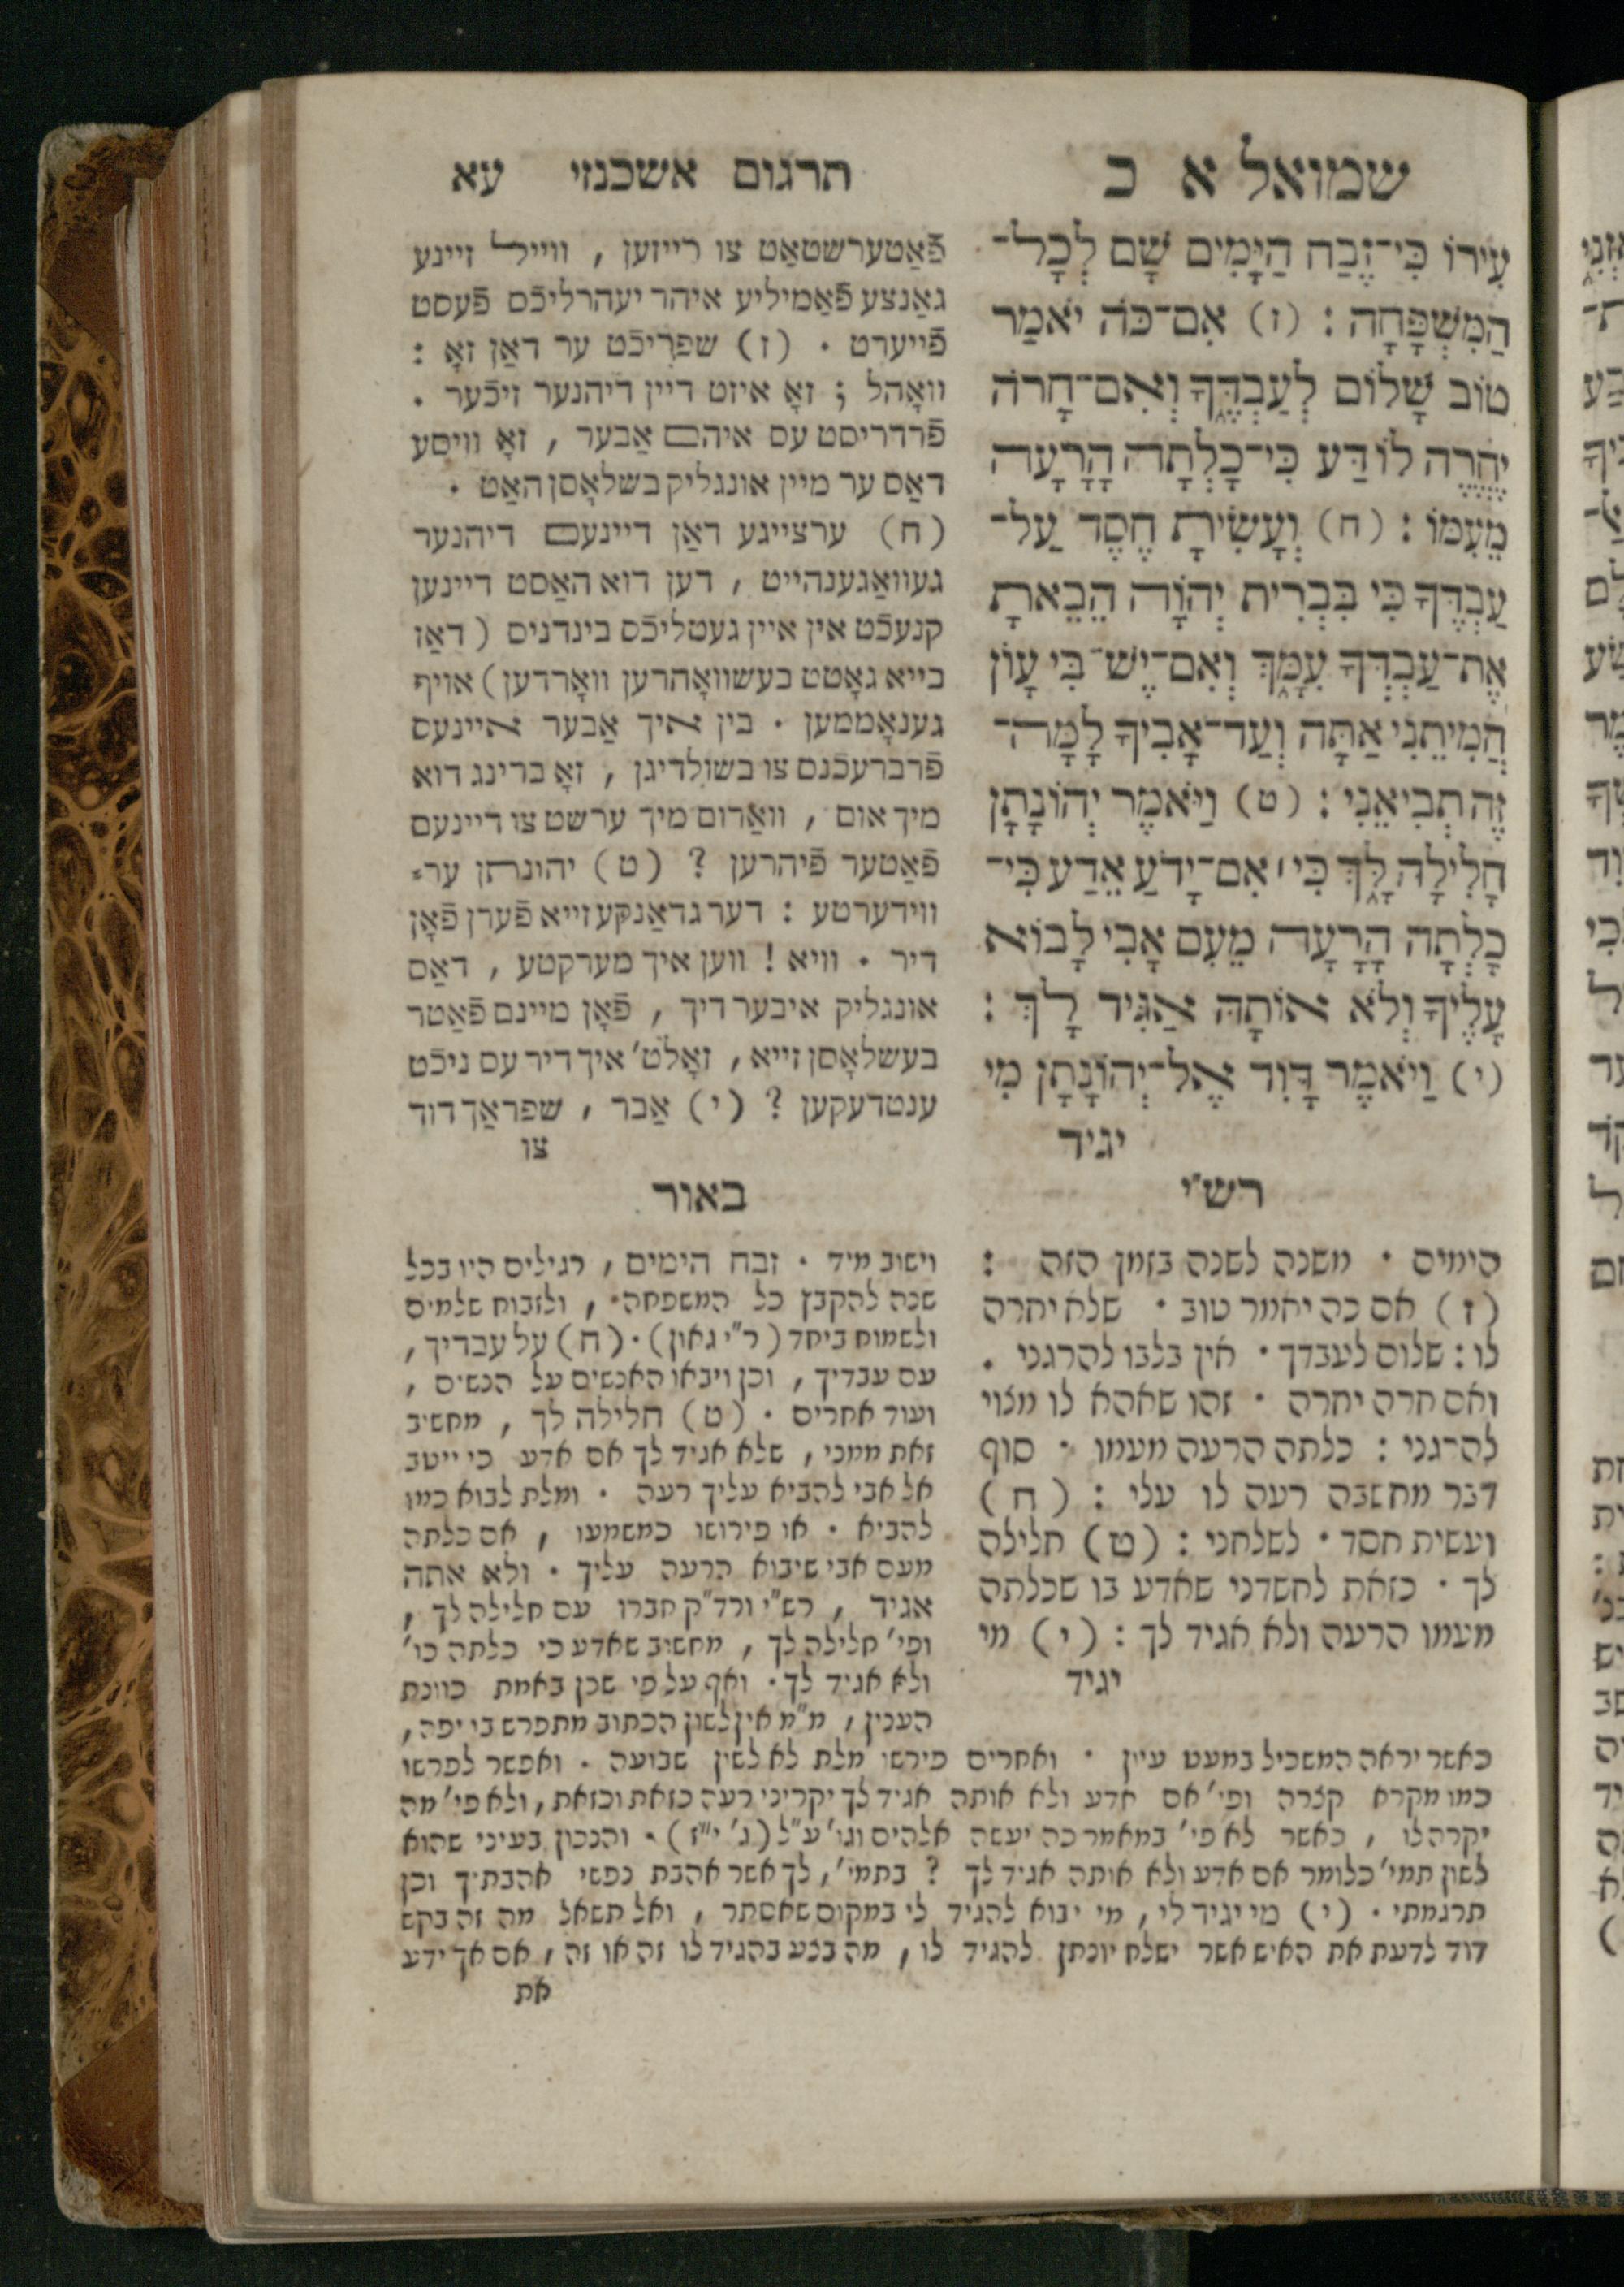 שמואל א כ
עִירוֹ כִּי־זֶבַח הַיָּמִים שָׁם לְכָל־
הַמִּשְׁפָּחָה : (ז) אִם־כֹּה יֹאמַר
טוֹב שָׁלוֹם לְעַבְדֶּךָ וְאִם־חָרֹה
יֶחֱרֶה לוֹ דַּע כִּי־כָלְתָה הָרָעָה
מֵעִמּוֹ : (ח) וְעָשִׂיתָ חֶסֶד עַל־
עַבְדֶּךָ כִּי בִּבְרִית יְהוָֹה הֵבֵאתָ
אֶת־עַבְדְּךָ עִמָּךְ וְאִם־יֶשׁ־בִּי עָוֹן
הֲמִיתֵנִי אַתָּה וְעַד־אָבִיךָ לָמָּה־
זֶּה תְבִיאֵנִי : (ט) וַיֹּאמֶר יְהוֹנָתָן
חָלִילָה לָּךְ כִּי׀ אִם־יָדֹעַ אֵדַע כִּי־
כָלְתָה הָרָעָה מֵעִם אָבִי לָבוֹא
עָלֶיךָ וְלֹא אוֹתָהּ אַגִּיד לָךְ :
(י) וַיֹּאמֶר דָּוִד אֶל־יְהוֹנָתָן מִי
יגיד
תרגום אשכנזי עא
פֿאַטערשטאַט צו רייזען , ווייל זיינע
גאַנצע פֿאַמיליע איהר יעהרליכֿס פֿעסט
פֿייערט . (ז) שפריכֿט ער דאַן זאָ :
וואָהל ; זאָ איזט דיין דיהנער זיכֿער .
פֿרדריסט עס איהם אַבער , זאָ וויסע
דאַס ער מיין אונגליק בשלאָסן האַט .
(ח) ערצייגע דאַן דיינעם דיהנער
געוואַגענהייט , דען דוא האַסט דיינען
קנעכֿט אין איין געטליכֿס בינדניס (דאַז
בייא גאָטט בעשוואָהרען וואָרדען) אויף
גענאָממען . בין איך אַבער איינעס
פֿרברעכֿנס צו בשולדיגן , זאָ ברינג דוא
מיך אום , וואַרום מיך ערשט צו דיינעם
פֿאַטער פֿיהרען ? (ט) יהונתן ער=
ווידערטע : דער גדאַנקע זייא פֿערן פֿאָן
דיר . וויא ! ווען איך מערקטע , דאַס
אונגליק איבער דיך , פֿאָן מיינם פֿאַטר
בעשלאָסן זייא , זאָלט' איך דיר עס ניכֿט
ענטדעקען ? (י) אַבר , שפראַך דוד
צו
רש"י
הימים . משנה לשנה בזמן הזה :
(ז) אם כה יאמר טוב . שלא יחרה
לו : שלום לעבדך . אין בלבו להרגני .
ואם חרה יחרה . זהו שאהא לו מצוי
להרגני : כלתה הרעה מעמו . סוף
דבר מחשבה רעה לו עלי : (ח)
ועשית חסד . לשלחני : (ט) חלילה
לך . כזאת לחשדני שאדע בו שכלתה
מעמו הרעה ולא אגיד לך : (י) מי
יגיד
באור
וישוב מיד . זבח הימים , רגילים היו בכל
שנה להקבץ כל המשפחה , ולזבוח שלמים
ולשמוח ביחד (ר"י גאון) . (ח) על עבדיך ,
עם עבדיך , וכן ויבאו האנשים על הנשים ,
ועוד אחרים . (ט) חלילה לך , מחשיב
זאת ממני , שלא אגיד לך אם אדע כי ייטב
אל אבי להביא עליך רעה . ומלת לבוא כמו
להביא . או פירושו כמשמעו , אם כלתה
מעם אבי שיבוא הרעה עליך . ולא אתה
אגיד , רש"י ורד"ק חברו עם חלילה לך ,
ופי' חלילה לך , מחשיב שאדע כי כלתה כו'
ולא אגיד לך . ואף על פי שכן באמת כוונת
הענין , מ"מ אין לשון הכתוב מתפרש בו יפה ,
כאשר יראה המשכיל במעט עיון . ואחרים פירשו מלת לא לשון שבועה . ואפשר לפרשו
כמו מקרא קצרה ופי' אם אדע ולא אותה אגיד לך יקריני רעה כזאת וכזאת , ולא פי' מה
יקרה לו , כאשר לא פי' במאמר כה יעשה אלהים וגו' ע"ל (ג' י"ז) . והנכון בעיני שהוא
לשון תמי' כלומר אם אדע ולא אותה אגיד לך ? בתמי' , לך אשר אהבת נפשי אהבתיך וכן
תרגמתי . (י) מי יגיד לי , מי יבוא להגיד לי במקום שאסתר , ואל תשאל מה זה בקש
דוד לדעת את האיש אשר ישלח יונתן להגיד לו , מה בצע בהגיד לו זה או זה , אם אך ידע
את